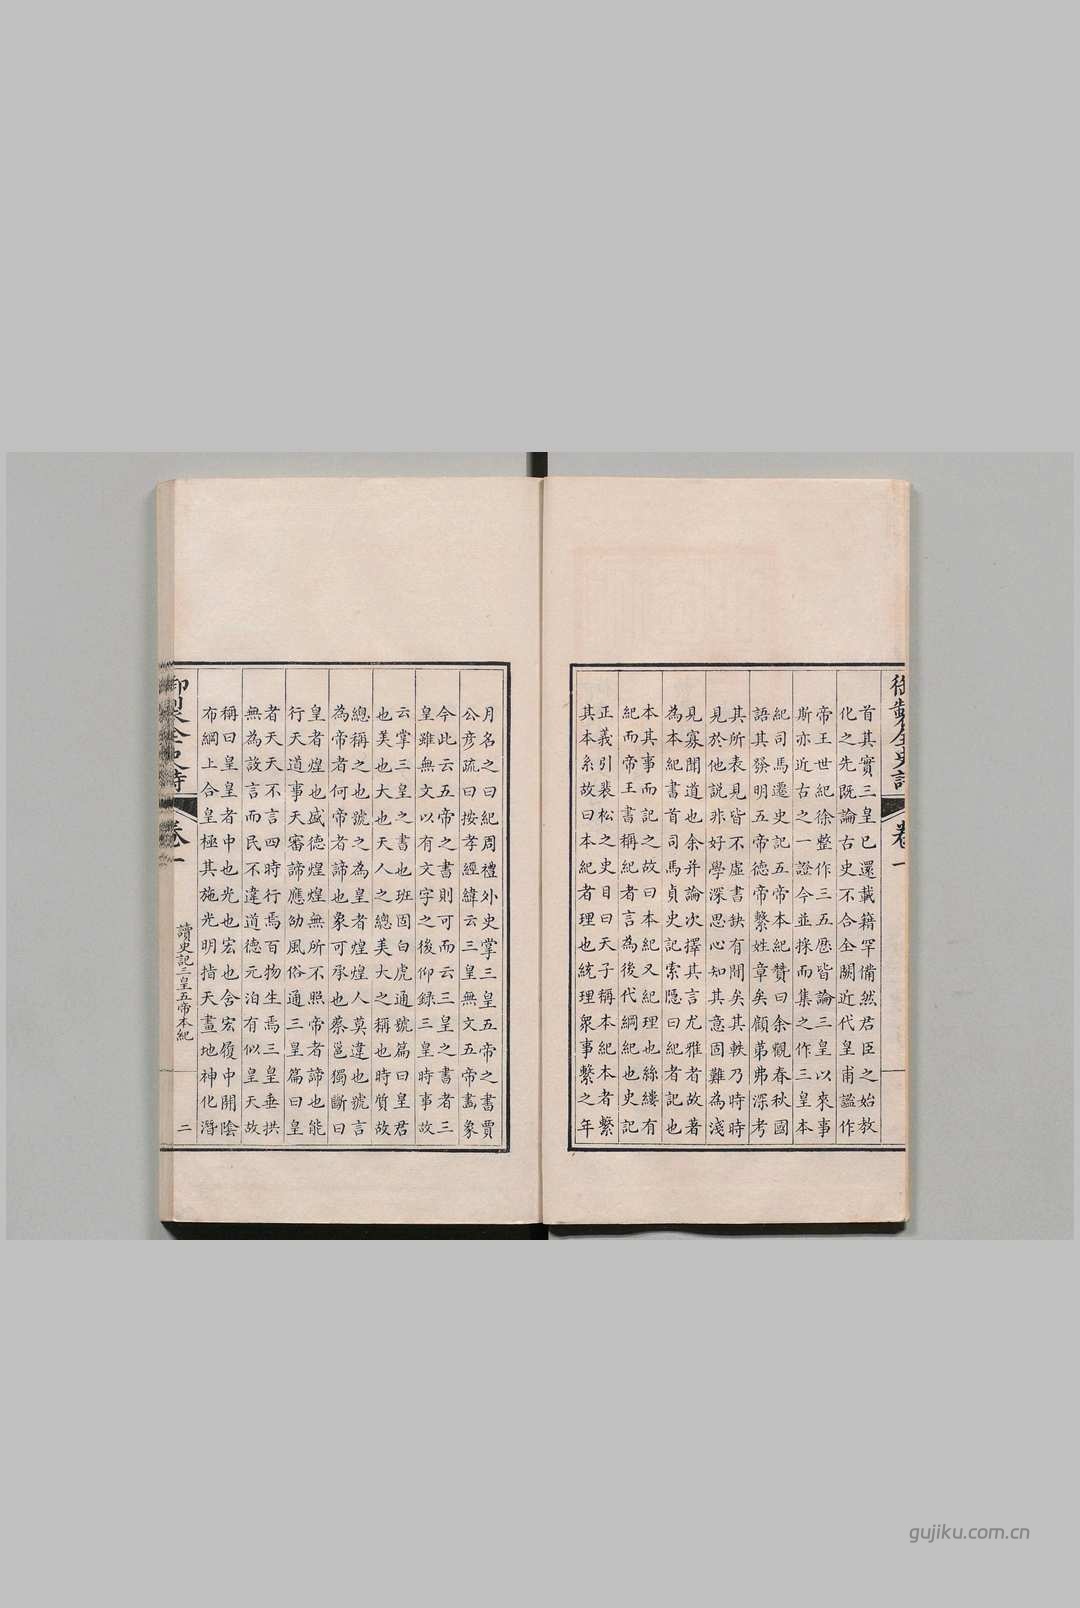 御製全史詩 卷一
首其實三皇已還載籍罕備然君臣之始教
化之先既論古史不合全闕近代皇甫謐作
帝王世紀徐整作三五厯皆論三皇以來事
斯亦近古之一證今並採而集之作三皇本
紀司馬遷史記五帝本紀贊曰余觀春秋國
語其發明五帝德帝繫姓章矣顧弟弗深考
其所表見皆不虛書缺有間矣其軼乃時時
見於他說非好學深思心知其意固難為淺
見寡聞道也余并論次擇其言尤雅者故著
為本紀書首司馬貞史記索隱曰紀者記也
本其事而記之故曰本紀又紀理也絲縷有
紀而帝王書稱紀者言為後代綱紀也史記
正義引裴松之史目曰天子稱本紀本者繫
其本系故曰本紀者理也統理衆事繫之年
月名之曰紀周禮外史掌三皇五帝之書賈
公彥疏曰按孝經緯云三皇無文五帝畫象
今此云五帝之書則可而云三皇之書者三
皇雖無文以有文字之後仰録三皇時事故
云掌三皇之書也班固白虎通號篇曰皇君
也美也大也天人之總美大之稱也時質故
總稱之也號之為皇者煌煌人莫違也號言
為帝者何帝者諦也象可承也蔡邕獨斷曰
皇者煌也盛德煌煌無所不照帝者諦也能
行天道事天審諦應劭風俗通三皇篇曰皇
者天天不言四時行焉百物生焉三皇垂拱
無為設言而民不違道德元泊有似皇天故
稱曰皇皇者中也光也宏也含宏履中開陰
布綱上合皇極其施光明指天畫地神化潛
御製全史詩 卷一 讀史記三皇五帝本紀 二
gujiku.com.cn